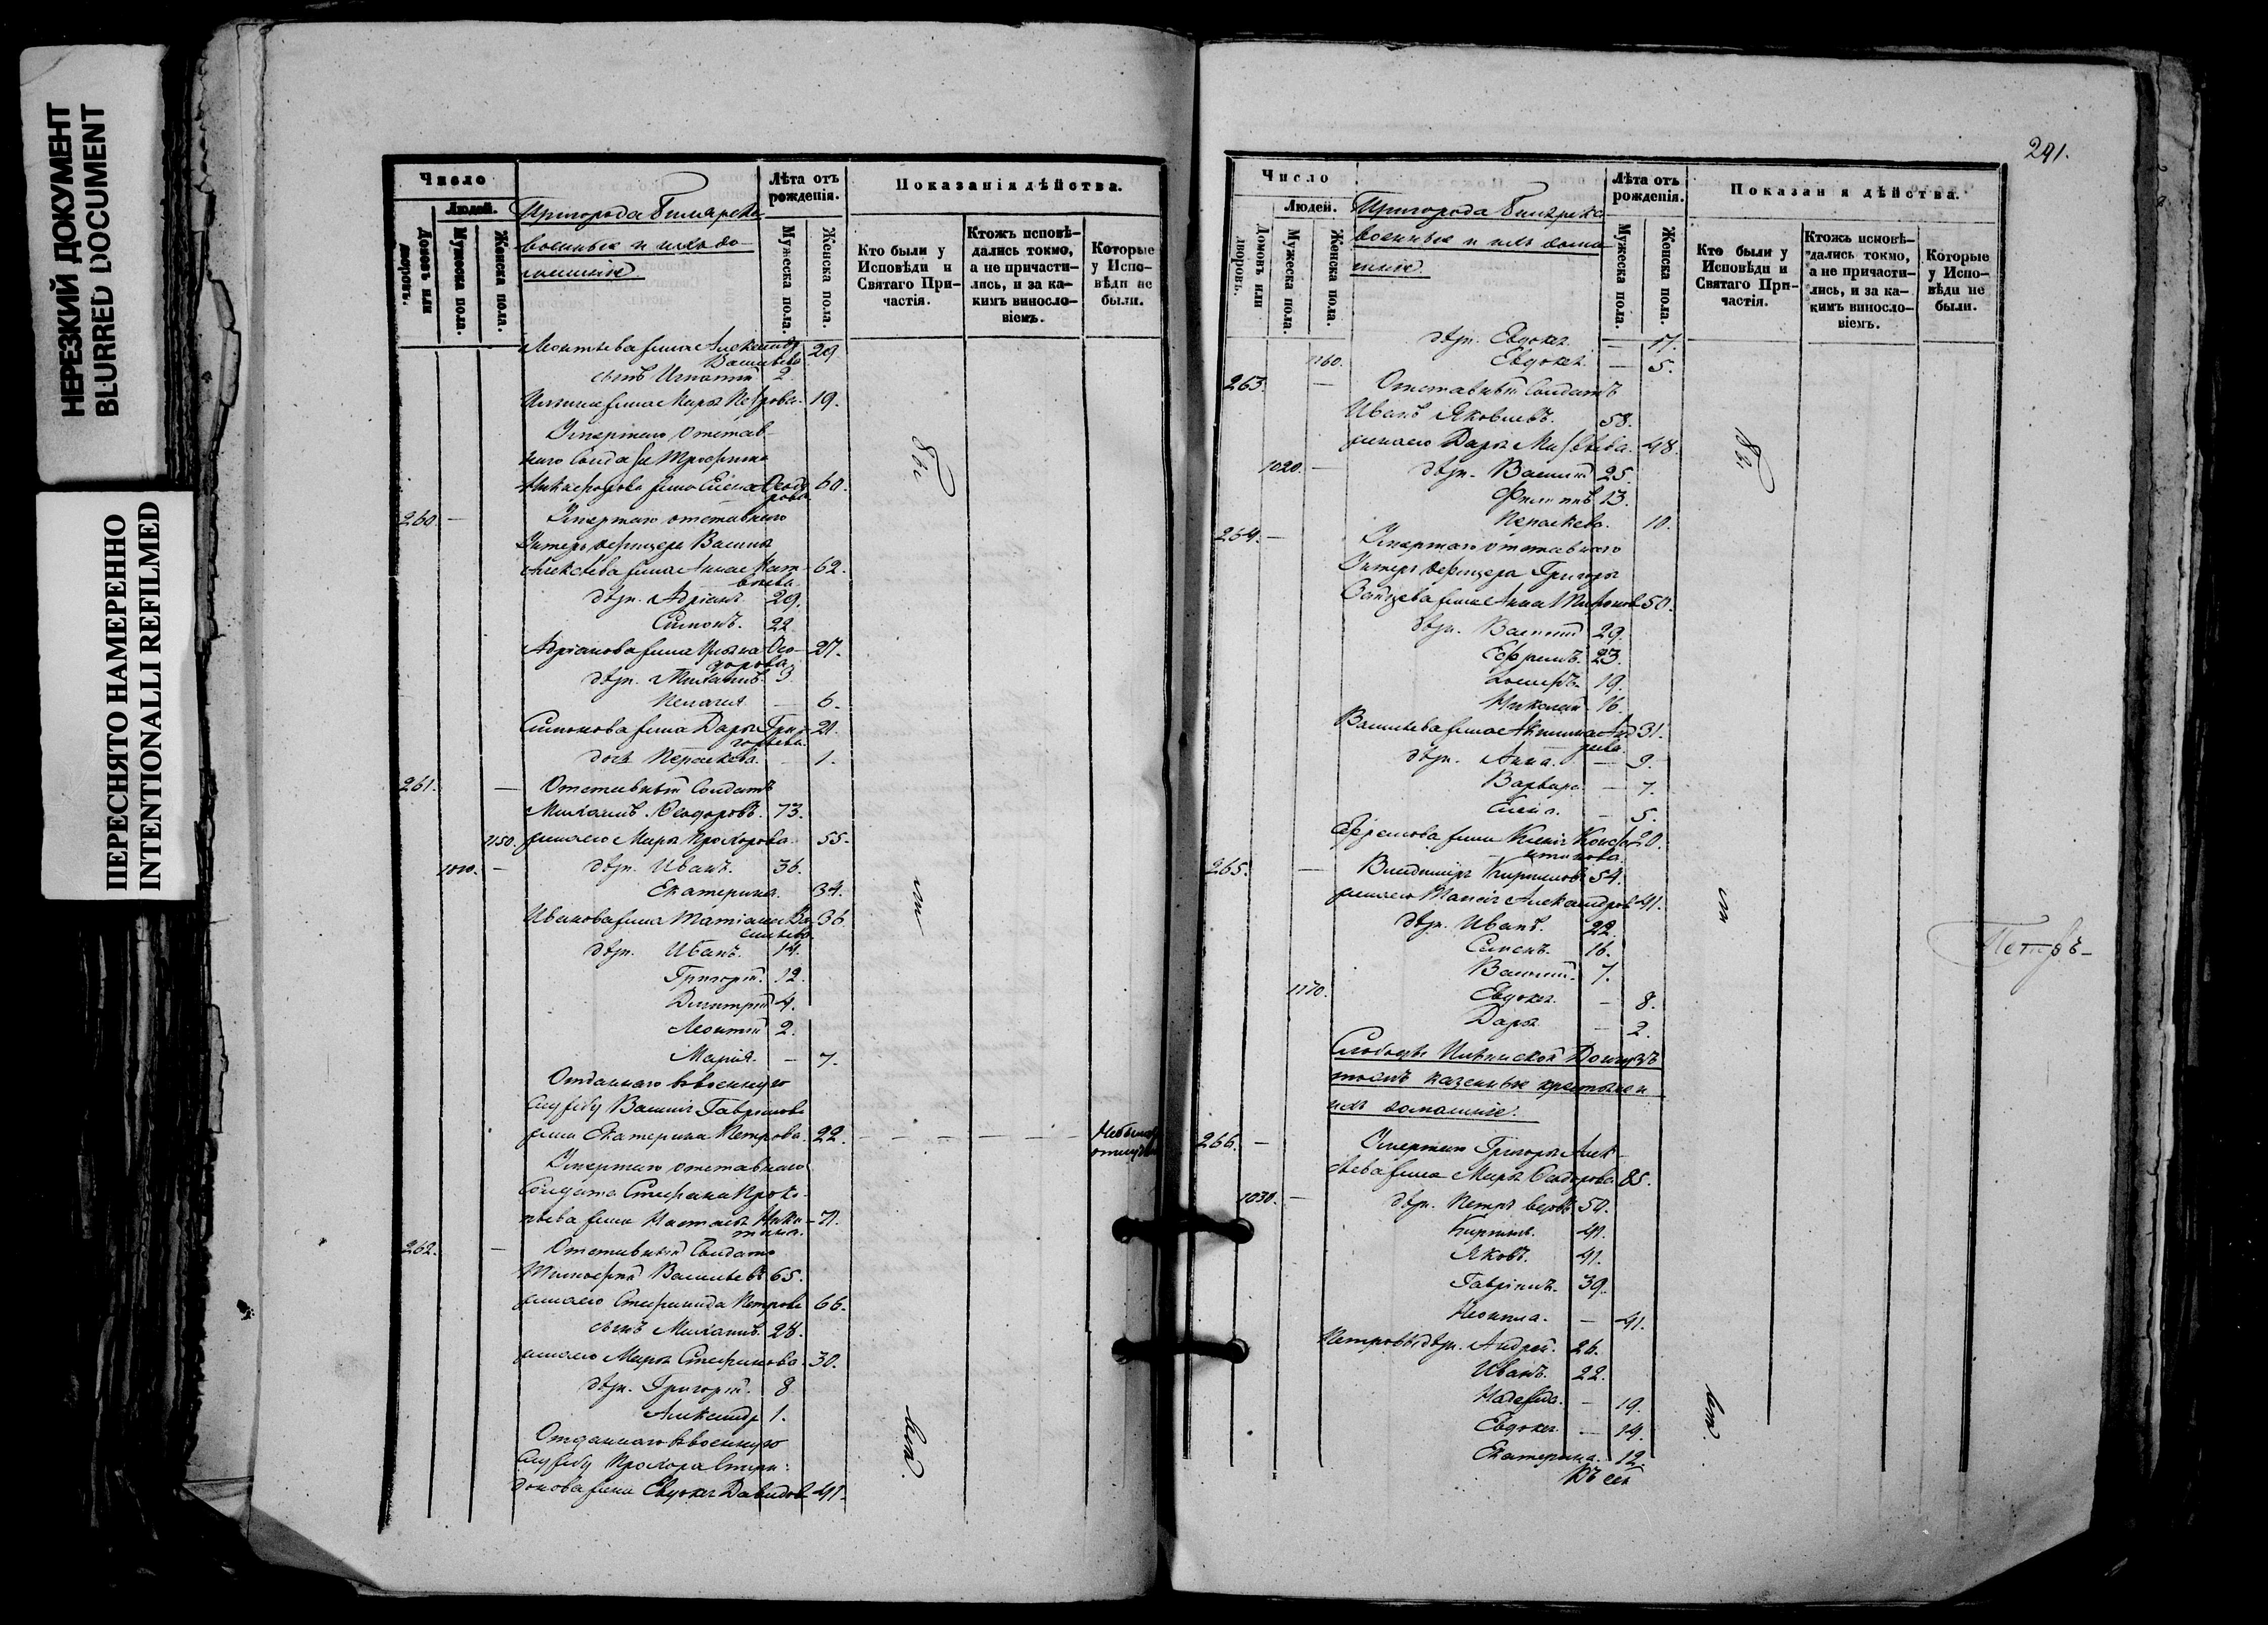 НЕРЕЗКИЙ ДОКУМЕНТ
BLURRED DOCUMENT
ПЕРЕСНЯТО НАМЕРЕННО
INTENTIONALLI REFILMED
Число
Людей.
Домовъ или дворовъ.
Мужеска пола.
Женска пола.
Пригорода Билярска
военные и ихъ до-
машніе
Лѣта отъ рожденія.
Мужеска пола.
Женска пола.
Показанія дѣйства.
Кто были у Исповѣди и Святаго Причастія.
Ктожъ исповѣ-
дались токмо,
а не причасти-
лись, и за ка-
кимъ винosло-
віемъ.
Которые
у Испо-
вѣди не
были.
Леонтьева жена Александра Васильева 29
сынъ Игнатій 2.
жена Марья Петрова 19.
Умершаго отстав-
наго Солдата Трофима
Никифорова жена Елена Ѳеодорова 60.
260. Умершаго отставнаго
Унтеръ офицера Василья
Алексѣева жена Анна Матвѣева 62.
дѣти. Адріанъ 29.
Симонъ. 22
Адріанова жена Ѳеодорова 27.
дѣти. Михаилъ. 3
Пелагія — 6.
Симонова жена Дарья Григорьева 21.
дочь Параскева. — 1.
261. Отставный Солдатъ
Михаилъ Ѳеодоровъ. 73.
1150. жена его Марья Прохорова 55.
1010. дѣти. Иванъ. 36.
Екатерина. 34.
Иванова жена Татіана Васильева 36
дѣти. Иванъ. 14.
Григорій. 12.
Димитрій 4.
Леонтій 2.
Марія. — 7.
Отданнаго въ военную
службу Василія Гаврилова
жена Екатерина Петрова. 22.
Умершаго отставнаго
Солдата Стефана Проко-
пьева жена Настасья Никитина 71.
262. Отставный Солдатъ
Тимофей Васильевъ 65.
жена его Степанида Петрова 66.
сынъ Михаилъ. 28.
жена его Марья Стефанова. 30.
дѣти. Григорій. 8
Александръ 1.
Отданнаго въ военную
службу Прохора Спири-
донова жена Евдокія Давидова 41.
241.
Число
Людей.
Домовъ или дворовъ.
Мужеска пола.
Женска пола.
Пригорода Билярска
военные и ихъ дома-
шніе.
Лѣта отъ рожденія.
Мужеска пола.
Женска пола.
Показанія дѣйства.
Кто были у Исповѣди и Святаго Причастія.
Ктожъ исповѣ-
дались токмо,
а не причасти-
лись, и за ка-
кимъ винosло-
віемъ.
Которые
у Испо-
вѣди не
были.
дѣти. Евдокія — 17.
1160. Евдокія — 5.
263. Отставный Солдатъ
Иванъ Яковлевъ. 58.
жена его Дарья 48.
1020. дѣти. Василій 25.
Филиппъ 13.
Параскева. 10.
264. Умершаго отставнаго
Унтеръ офицера Григорья
Зайцева жена Анна 50.
дѣти. Василій 29.
Ефремъ. 23.
19.
Николай 16.
Васильева жена Акилина Андреева 31.
дѣти. Анна. — 9.
Варвара — 7.
Елена. — 5.
Ефремова жена Ксенія Константинова 20.
265. Владиміръ Кириловъ 54.
жена его Александрова 41.
дѣти. Иванъ. 22.
Симонъ. 16.
Василій. 7.
1170. Евдокія. — 8.
Дарья — 2.
казенные крестьяне и
ихъ домашніе.
266. Умершаго Григорья Алек-
сѣева жена Марья Ѳеодорова 85.
1030. дѣти. Петръ вдовъ 50.
Кирилъ. 41.
Яковъ. 41.
Гавріилъ. 39.
Неонила. — 41.
Петровы дѣти. Андрей. 26.
Иванъ. 22.
Надежда. — 19.
Евдокія — 14.
Екатерина. 12.
Петръ